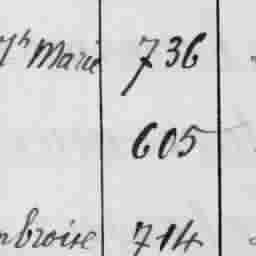 Mh Marie 736
605
mbroise 714